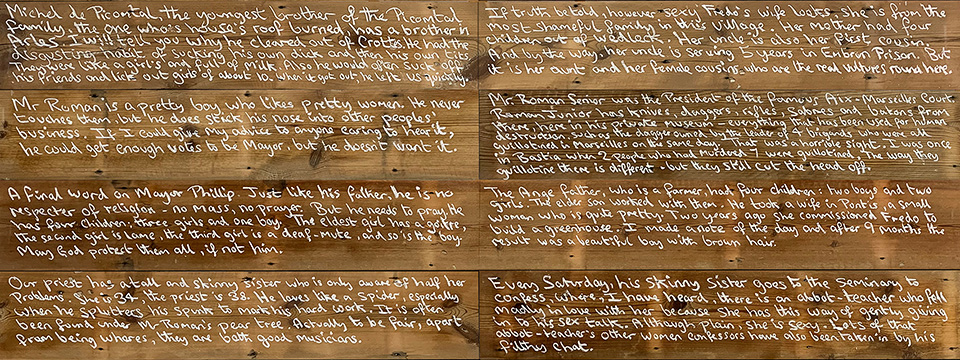 Michel de Picontal, the youngest brother of the Picontal
family, the one who's house's roof burned, has a brother in
Arles. I will tell you why he cleared out of Crotte. He had the
disgusting habit of
were like a girl's and full of milk. Also he would often suck off
his friends and lick out girls of about 10. When it got out, he left us quickly.
Mr Roman is a pretty boy who likes pretty women. He never
touches them, but he does stick his nose into other peoples'
business. If I could give my advice to anyone caring to hear it,
he could get enough votes to be Mayor, but he doesn't want it.
A final word on Mayor Phillip. Just like his father, he is no
respecter of religion - no mass, no prayer. But he needs to pray. He
has four children, three girls and one boy. The eldest girl has a goitre,
The second girl is lame, the third girl is a deaf-mute, and so is the boy.
May God protect them all, if not him.
Our priest has a tall and skinny sister who is only aware of half her
problems. She is 34, the priest is 38. He loves like a spider, especially
when he splutters his spunk to mark his hard work. It is often
been found under Mr Roman's pear tree. Actually to be fair, apart
from being whores, they are both good musicians.
If truth be told, however sexy Fredo's wife looks she is from the
most shameful family in this village. Her mother had four
children out of wedlock. Her uncle is also her first cousin.
And by the way, her uncle is serving 5 years in Embrun Prison. But
it is her aunt and her female cousins who are the real vultures round here.
Mr. Roman Senior was the President of the famous Aix-Marseilles Court.
Roman Junior has knives, daggers, rifles, sabres and batons from
there, here in his private museum - everything that has been used for human
destruction such as the dagger owned by the leader of 14 brigands who were all
guillotined in Marseilles on the same day. That was a horrible sight. I was once
in Bastia when 2 people who had murdered 7 were guillotined. The way they
guillotine there is different - but they still cut the head off.
The Ange father, who is a farmer, had four children: two boys and two
girls. The elder son worked with them. He took a wife in Pontis, a small
woman who is quite pretty. Two years ago she commissioned Fredo to
build a greenhouse. I made a note of the day and after 9 months the
result was a beautiful boy with brown hair.
Every Saturday, his skinny sister goes to the Seminary to
confess, where, I have heard, there is an abbot-teacher who fell
madly in love with her because she has this way of gently giving
in to his sex talk. Although plain, she is sexy. Lots of that
abbot-teacher's other women confessors have also been taken in by his
filthy chat.